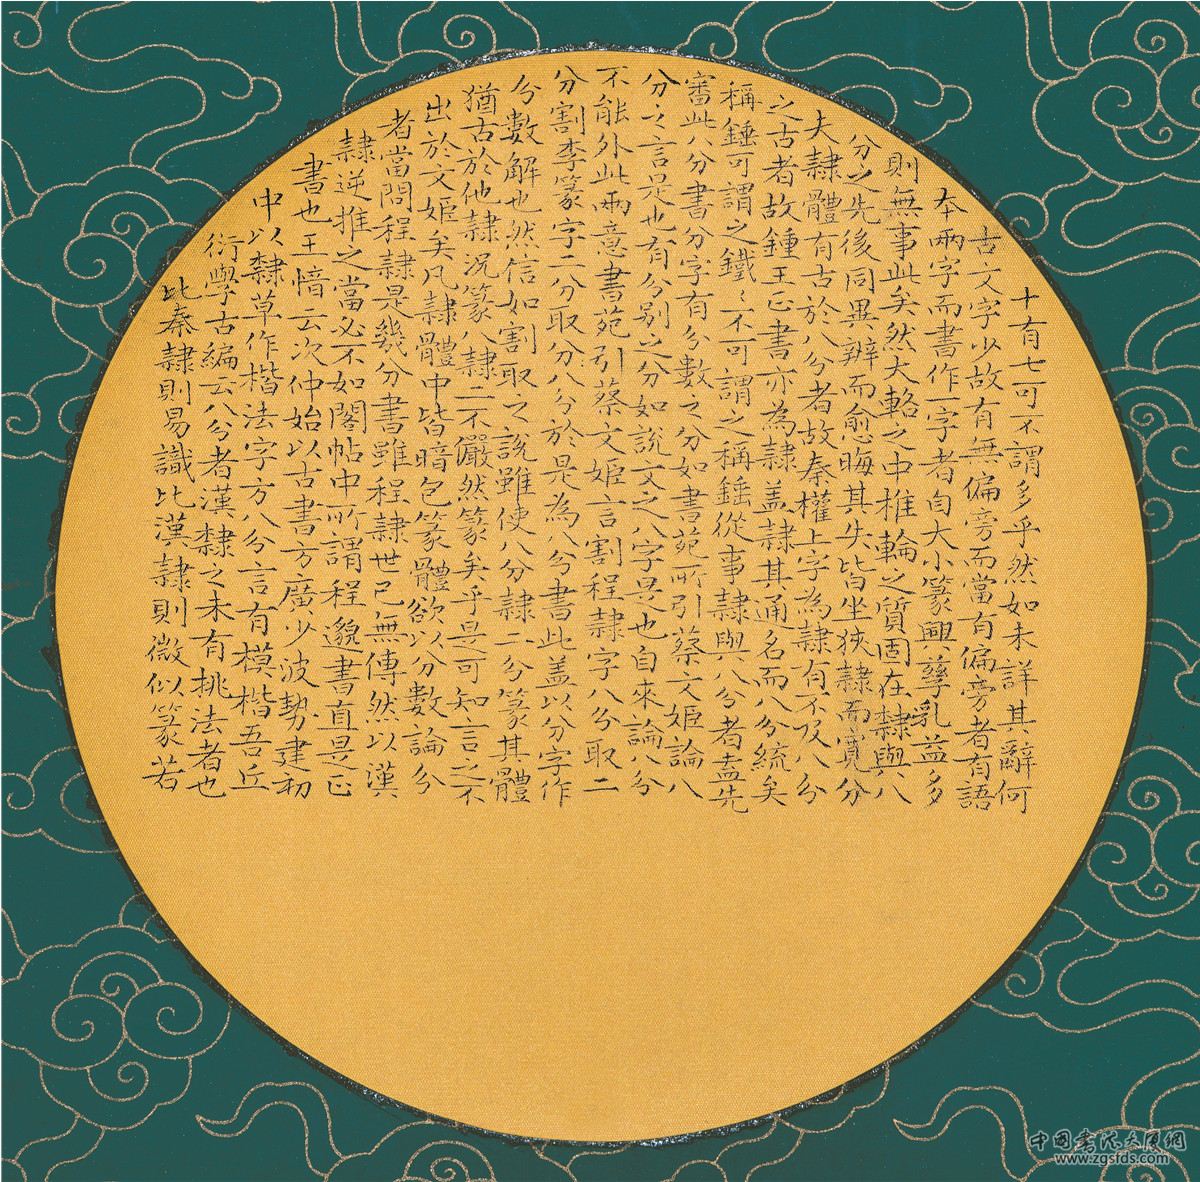 十有七可不謂多乎然如未詳其辭何
古文字少故有無偏旁而當有偏旁者有語
本兩字而書作一字者自大小篆興孳乳益多
則無事此矣然大輅之中椎輪之質固在隸與八
分之先後同異辨而愈晦其失皆坐狹隸而寬分
夫隸體有古於八分者故秦權上字為隸有不及八分
之古者故鍾王正書亦為隸盖隸其通名而八分統矣
稱錘可謂之鐵〻不可謂之稱錘從事隸與八分者盍先
審此八分書分字有分數之分如書苑所引蔡文姬論八
分之言是也有分別之分如說文之八字是也自來論八分
不能外此兩意書苑引蔡文姬言割程隸字八分取二
分割李篆字二分取分八分於是為八分書此盖以分字作
分數解也然信如割取之說雖使八分隸二分篆其體
猶古於他隸況篆八隸二不儼然篆矣乎是可知言之不
出於文姬矣凡隸體中皆暗包篆體欲以分數論分
者當問程隸是幾分書雖程隸世已無傳然以漢
隸逆推之當必不如閣帖中所謂程邈書直是正
書也王愔云次仲始以古書方廣少波勢建初
中以隸草作楷法字方八分言有模楷吾丘
衍學古編云八分者漢隸之未有挑法者也
比秦隸則易識比漢隸則微似篆若
中国书法大厦网
www.zgsfds.com